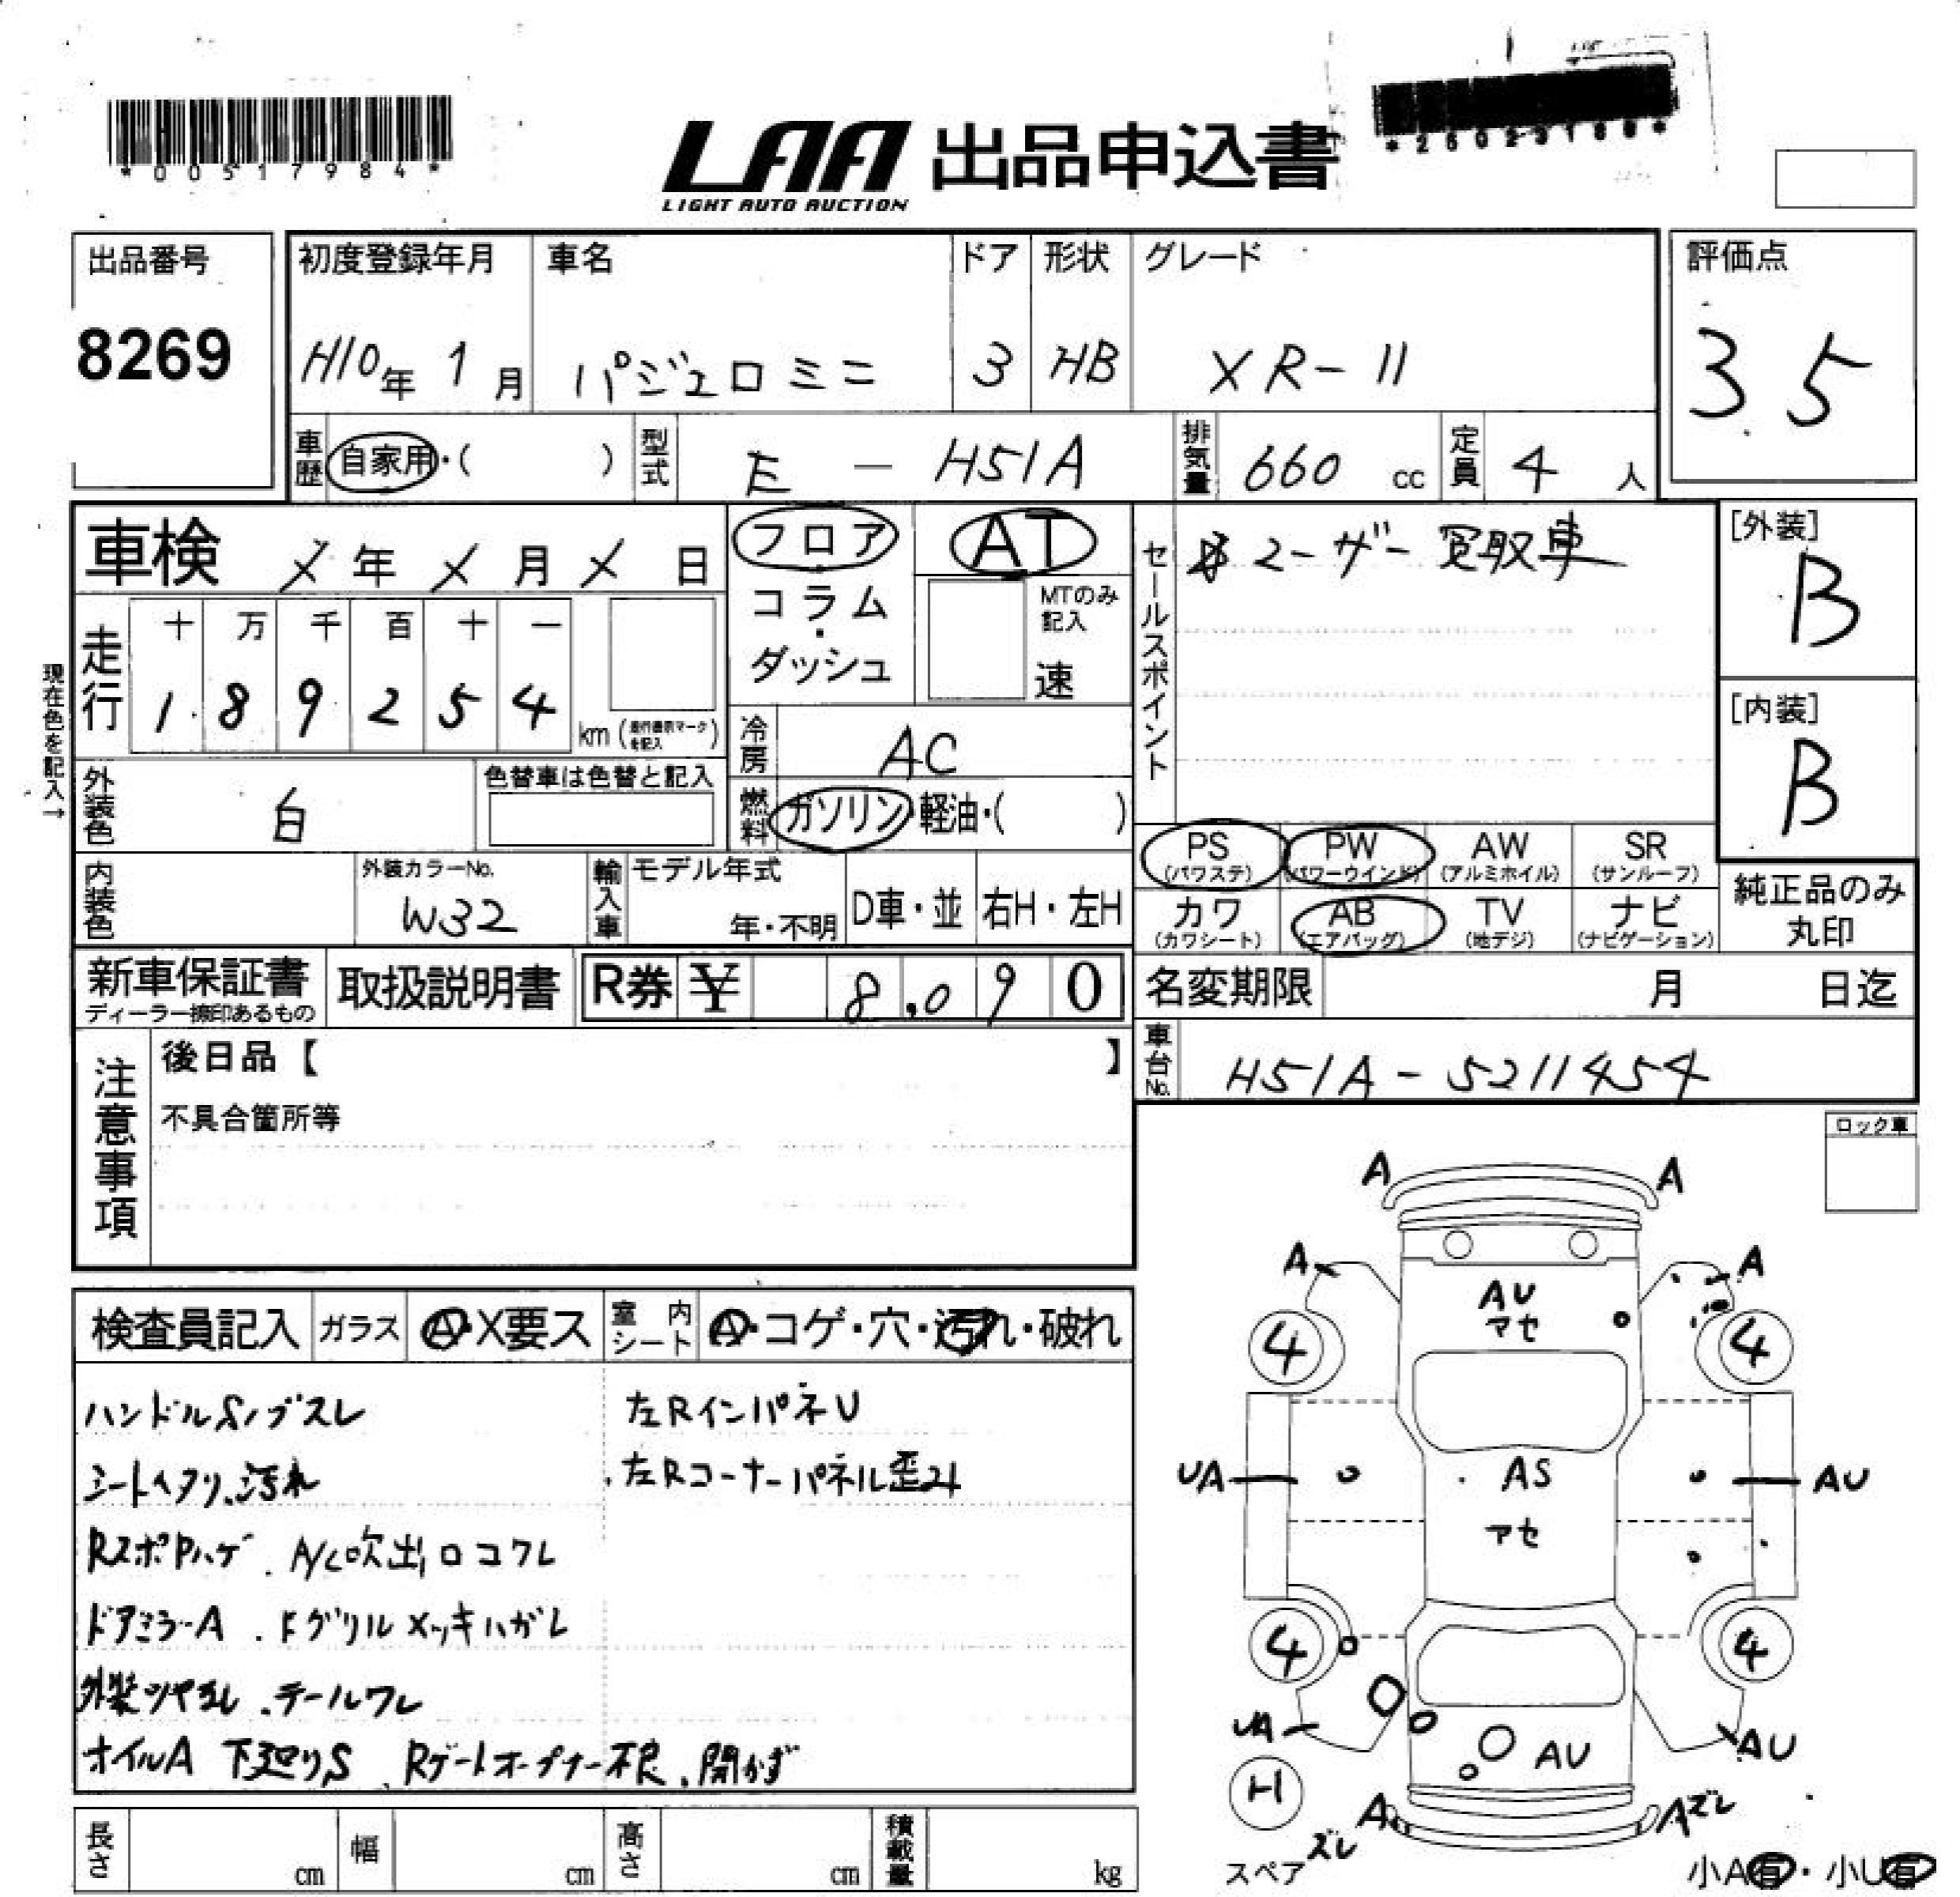 *00517984*
LAA 出品申込書
LIGHT AUTO AUCTION
出品番号 初度登録年月 車名 ドア 形状 グレード 評価点
8269 H10年 1月 パジェロミニ 3 HB XR-II 3.5
車歴 自家用・( ) 型式 E - H51A 排気量 660 cc 定員 4 人
車検 年 月 日 フロア・コラム・ダッシュ AT セールスポイント ユーザー買取車 [外装] B
MTのみ記入 速
走行 十 万 千 百 十 一
1 8 9 2 5 4 km
現在色を記入→
冷房 AC [内装] B
外装色 白 色替車は色替と記入 燃料 ガソリン・軽油・( )
PS (パワステ) PW (パワーウインド) AW (アルミホイル) SR (サンルーフ)
内装色 外装カラーNo. W32 輸入車 モデル年式 年・不明 D車・並 右H・左H
カワ (カワシート) AB (エアバッグ) TV (地デジ) ナビ (ナビゲーション) 純正品のみ丸印
新車保証書 ディーラー捺印あるもの 取扱説明書 R券 ¥ 8,090 名変期限 月 日迄
車台No. H51A-5211454
注意事項 後日品【 】
不具合箇所等
ロック車
検査員記入 ガラス A・X要ス 室内シート A・コゲ・穴・汚れ・破れ
ハンドルS ノブスレ 左RインパネU
シートヘタリ、汚れ 左Rコーナーパネル歪み
RスポPハゲ、A/C吹出口コワレ
ドアミラーA、Fグリルメッキハガレ
外装ツヤ無し、テールワレ
オイルA 下廻りS、Rゲートオープナー不良、開かず
A A
A A
AU
アセ
4 4
UA AS AU
アセ
4 4
UA AU AU
H
A A ズレ
ズレ
スペア
小A有・小U有
長さ cm 幅 cm 高さ cm 積載量 kg